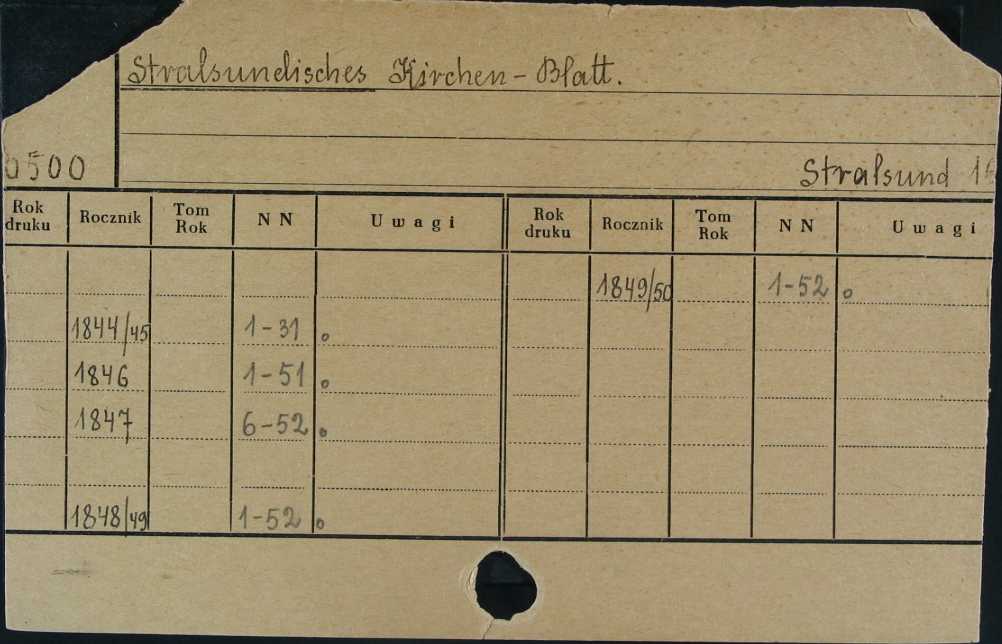 Stralsundisches Kirchen-Blatt.
0500
Stralsund
Rok druku Rocznik Tom Rok NN Uwagi Rok druku Rocznik Tom Rok NN Uwagi
1849/50 1-52 o
1844/45 1-31 o
1846 1-51 o
1847 6-52 o
1848/49 1-52 o